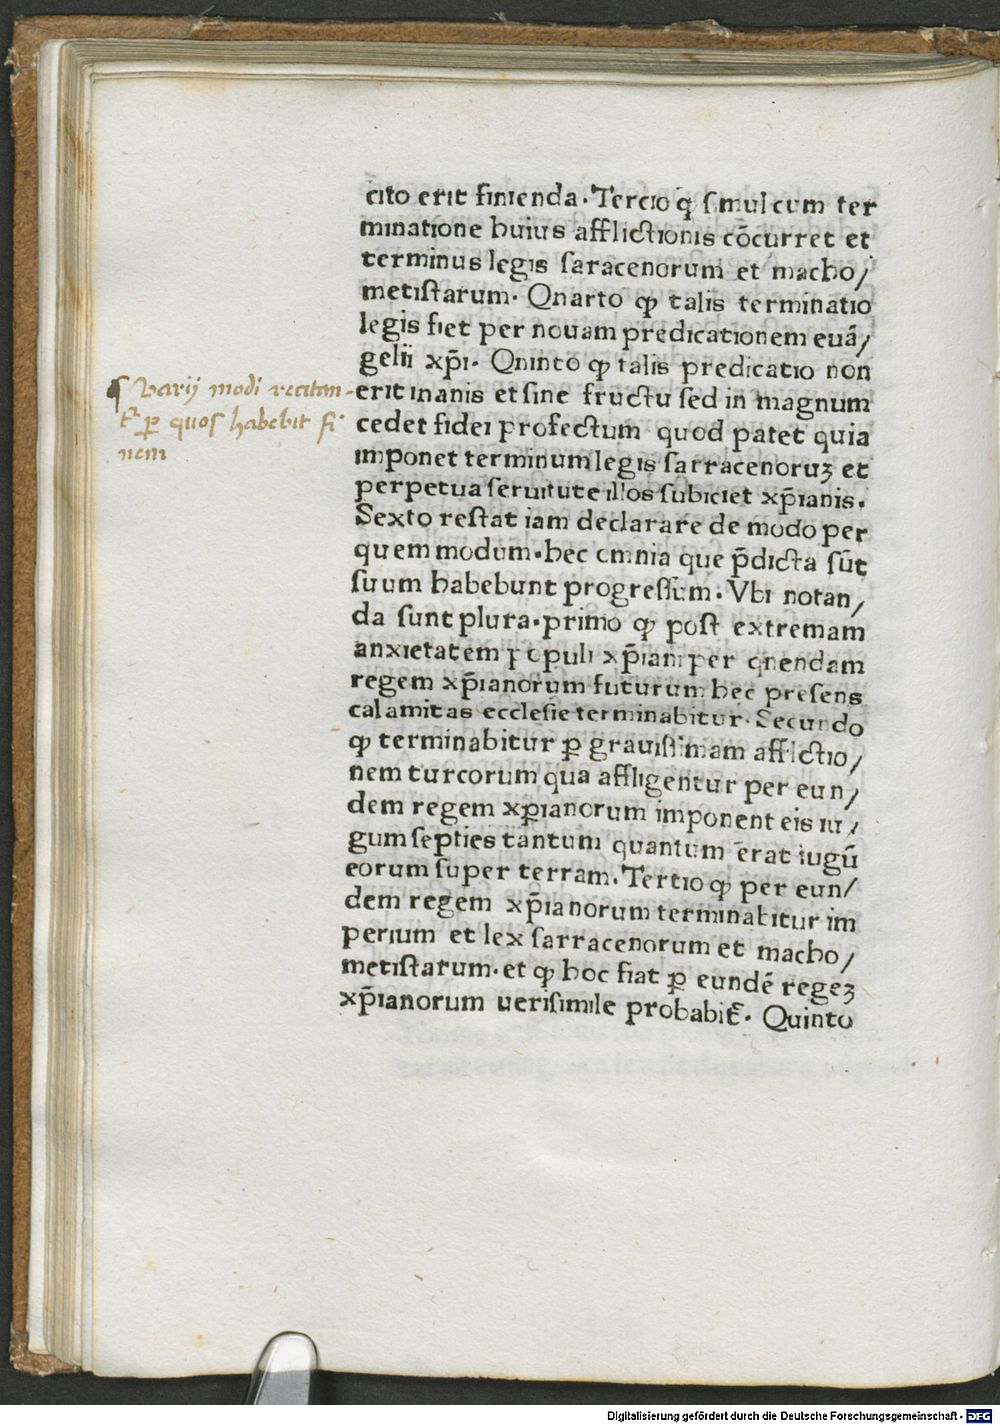 cito erit finienda. Tercio ꝙ simul cum ter
minatione huius afflictionis cōcurret et
terminus legis saracenorum et macho/
metistarum. Qnarto ꝙ talis terminatio
legis fiet per nouam predicationem euā/
gelii xp̄i. Qninto ꝙ talis predicatio non
erit inanis et sine fructu sed in magnum
cedet fidei profectum quod patet quia
imponet terminum legis sarracenoruꝫ et
perpetua seruitute illos subiciet xp̄ianis.
Sexto restat iam declarare de modo per
quem modum. hec omnia que p̄dicta sūt
suum habebunt progressum. Vbi notan/
da sunt plura. primo ꝙ post extremam
anxietatem populi xp̄iani per qnendam
regem xp̄ianorum futurum hec presens
calamitas ecclesie terminabitur. Secundo
ꝙ terminabitur ꝑ grauissimam afflictio/
nem turcorum qua affligentur per eun/
dem regem xp̄ianorum imponent eis iu/
gum septies tantum quantum erat iugū
eorum super terram. Tertio ꝙ per eun/
dem regem xp̄ianorum terminabitur im
perium et lex sarracenorum et macho/
metistarum. et ꝙ hoc fiat ꝑ eundē regeꝫ
xp̄ianorum uerisimile probabit̄. Quinto
Varij modi recitan-
t᷑ ꝑ quos habebit fi
nem
Digitalisierung gefördert durch die Deutsche Forschungsgemeinschaft - DFG